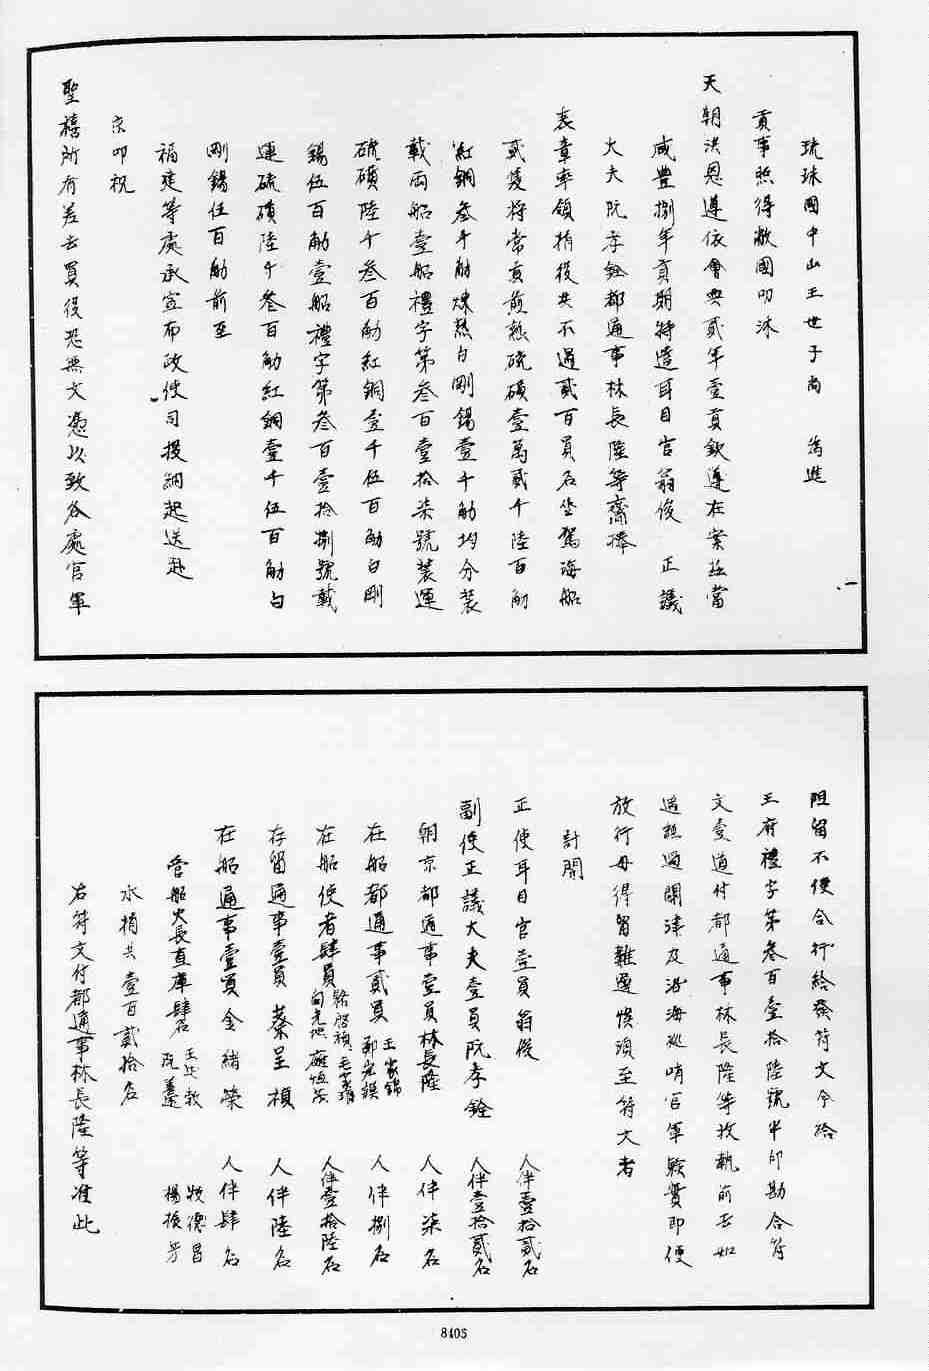 琉球國中山王世子尚　為進
貢事照得敝國叨沐
天朝洪恩遵依會典貳年壹貢欽遵在案茲當
咸豐捌年貢期特遣耳目官翁俊　正議
大夫阮孝銓都通事林長隆等齎捧
表章率領梢役共不過貳百員名坐駕海船
貳隻將常貢煎熟硫磺壹萬貳千陸百觔
紅銅叁千觔煉熟白剛錫壹千觔均分裝
載兩船壹船禮字第叁百壹拾柒號裝運
硫磺陸千叁百觔紅銅壹千伍百觔白剛
錫伍百觔壹船禮字第叁百壹拾捌號載
運硫磺陸千叁百觔紅銅壹千伍百觔白
剛錫伍百觔前至
福建等處承宣布政使司投納起送赴
京叩祝
聖禧所有差去員役恐無文憑以致各處官軍
阻留不便合行給發符文今給
王府禮字第叁百壹拾陸號半印勘合符
文壹道付都通事林長隆等收執前去如
遇經過關津及沿海巡哨官軍驗實即便
放行毋得留難遲悞須至符文者
計開
正使耳目官壹員翁俊　人伴壹拾貳名
副使正議大夫壹員阮孝銓　人伴壹拾貳名
朝京都通事壹員林長隆　人伴柒名
在船都通事貳員　王家錦　鄭宏謨　人伴捌名
在船使者肆員　向克地　人伴壹拾陸名
存留通事壹員　蔡呈楨　人伴陸名
在船通事壹員金緒榮　人伴肆名
管船火長直庫肆名　阮　牧德昌　楊
水梢共壹百貳拾名
右符文付都通事林長隆等准此
8405